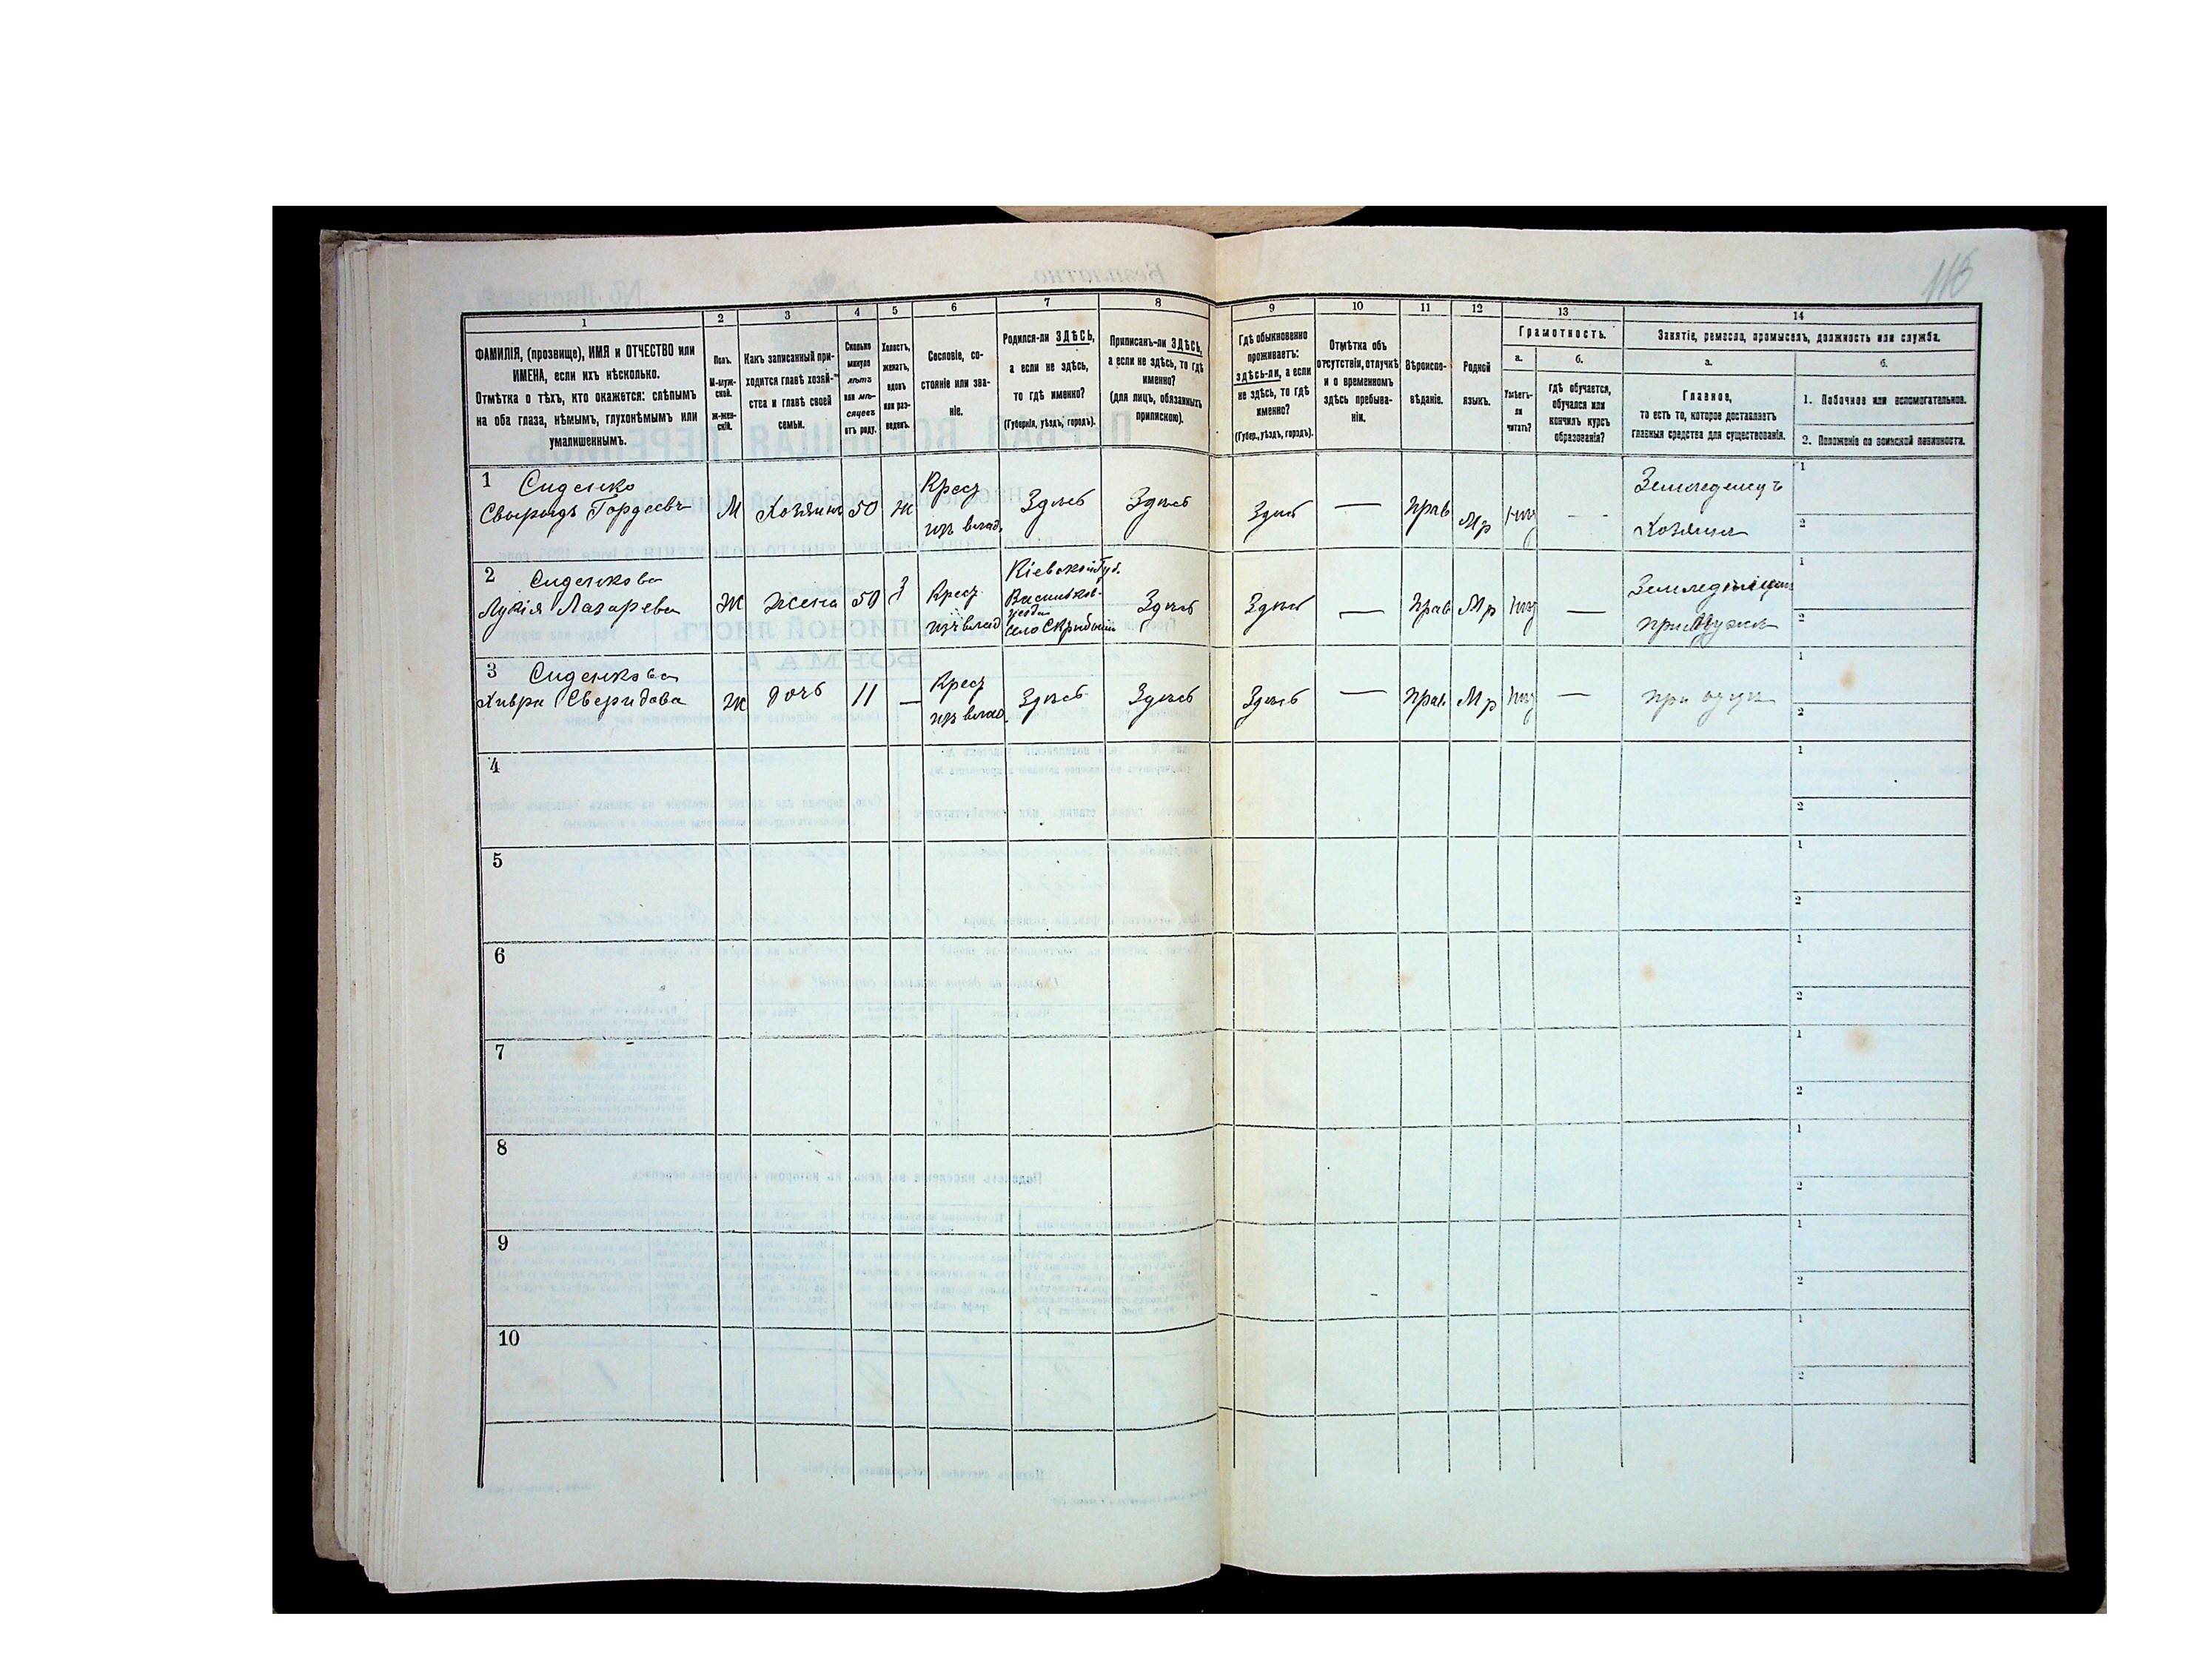 116
1 2 3 4 5 6 7 8 9 10 11 12 13 14
ФАМИЛІЯ, (прозвище), ИМЯ и ОТЧЕСТВО или
ИМЕНА, если ихъ нѣсколько.
Отмѣтка о тѣхъ, кто окажется: слѣпымъ
на оба глаза, нѣмымъ, глухонѣмымъ или
умалишеннымъ.
Полъ.
М-муж-
ской.
Ж-жен-
скій.
Какъ записанный при-
ходится главѣ хозяй-
ства и главѣ своей
семьи.
Сколько
минуло
лѣтъ
или мѣ-
сяцевъ
отъ роду.
Холостъ,
женатъ,
вдовъ
или раз-
веденъ.
Сословіе, со-
стояніе или зва-
ніе.
Родился-ли ЗДѢСЬ,
а если не здѣсь,
то гдѣ именно?
(Губернія, уѣздъ, городъ).
Приписанъ-ли ЗДѢСЬ,
а если не здѣсь, то гдѣ
именно?
(для лицъ, обязанныхъ
припискою).
Гдѣ обыкновенно
проживаетъ:
здѣсь-ли, а если
не здѣсь, то гдѣ
именно?
(Губер., уѣздъ, городъ).
Отмѣтка объ
отсутствіи, отлучкѣ
и о временномъ
здѣсь пребыва-
ніи.
Вѣроиспо-
вѣданіе.
Родной
языкъ.
Грамотность.
а.
Умѣетъ-
ли
читать?
б.
гдѣ обучается,
обучался или
кончилъ курсъ
образованія?
Занятіе, ремесло, промыселъ, должность или служба.
а.
Главное,
то есть то, которое доставляетъ
главныя средства для существованія.
б.
1. Побочное или вспомогательное.
2. Положеніе по воинской повинности.
1 Сиденко
Свыридъ Гордеевъ
М
Хозяинъ
50
ж
Крест
изъ влад.
Здѣсь
Здѣсь
Здѣсь
—
прав
Мр
—
Земледелецъ
Хозяинъ
1
2
2 Сиденкова
Лукія Лазарева
Ж
жена
50
з
Крест
изъ влад
Кіевской Губ.
Васильков-
уезда
село
Здѣсь
Здѣсь
—
Прав
Мр
—
при мужѣ
1
2
3 Сиденкова
Хивря Сверидова
Ж
дочь
11
—
Крест
изъ влад
Здѣсь
Здѣсь
Здѣсь
—
Прав
Мр
—
при отцѣ
1
2
4
1
2
5
1
2
6
1
2
7
1
2
8
1
2
9
1
2
10
1
2